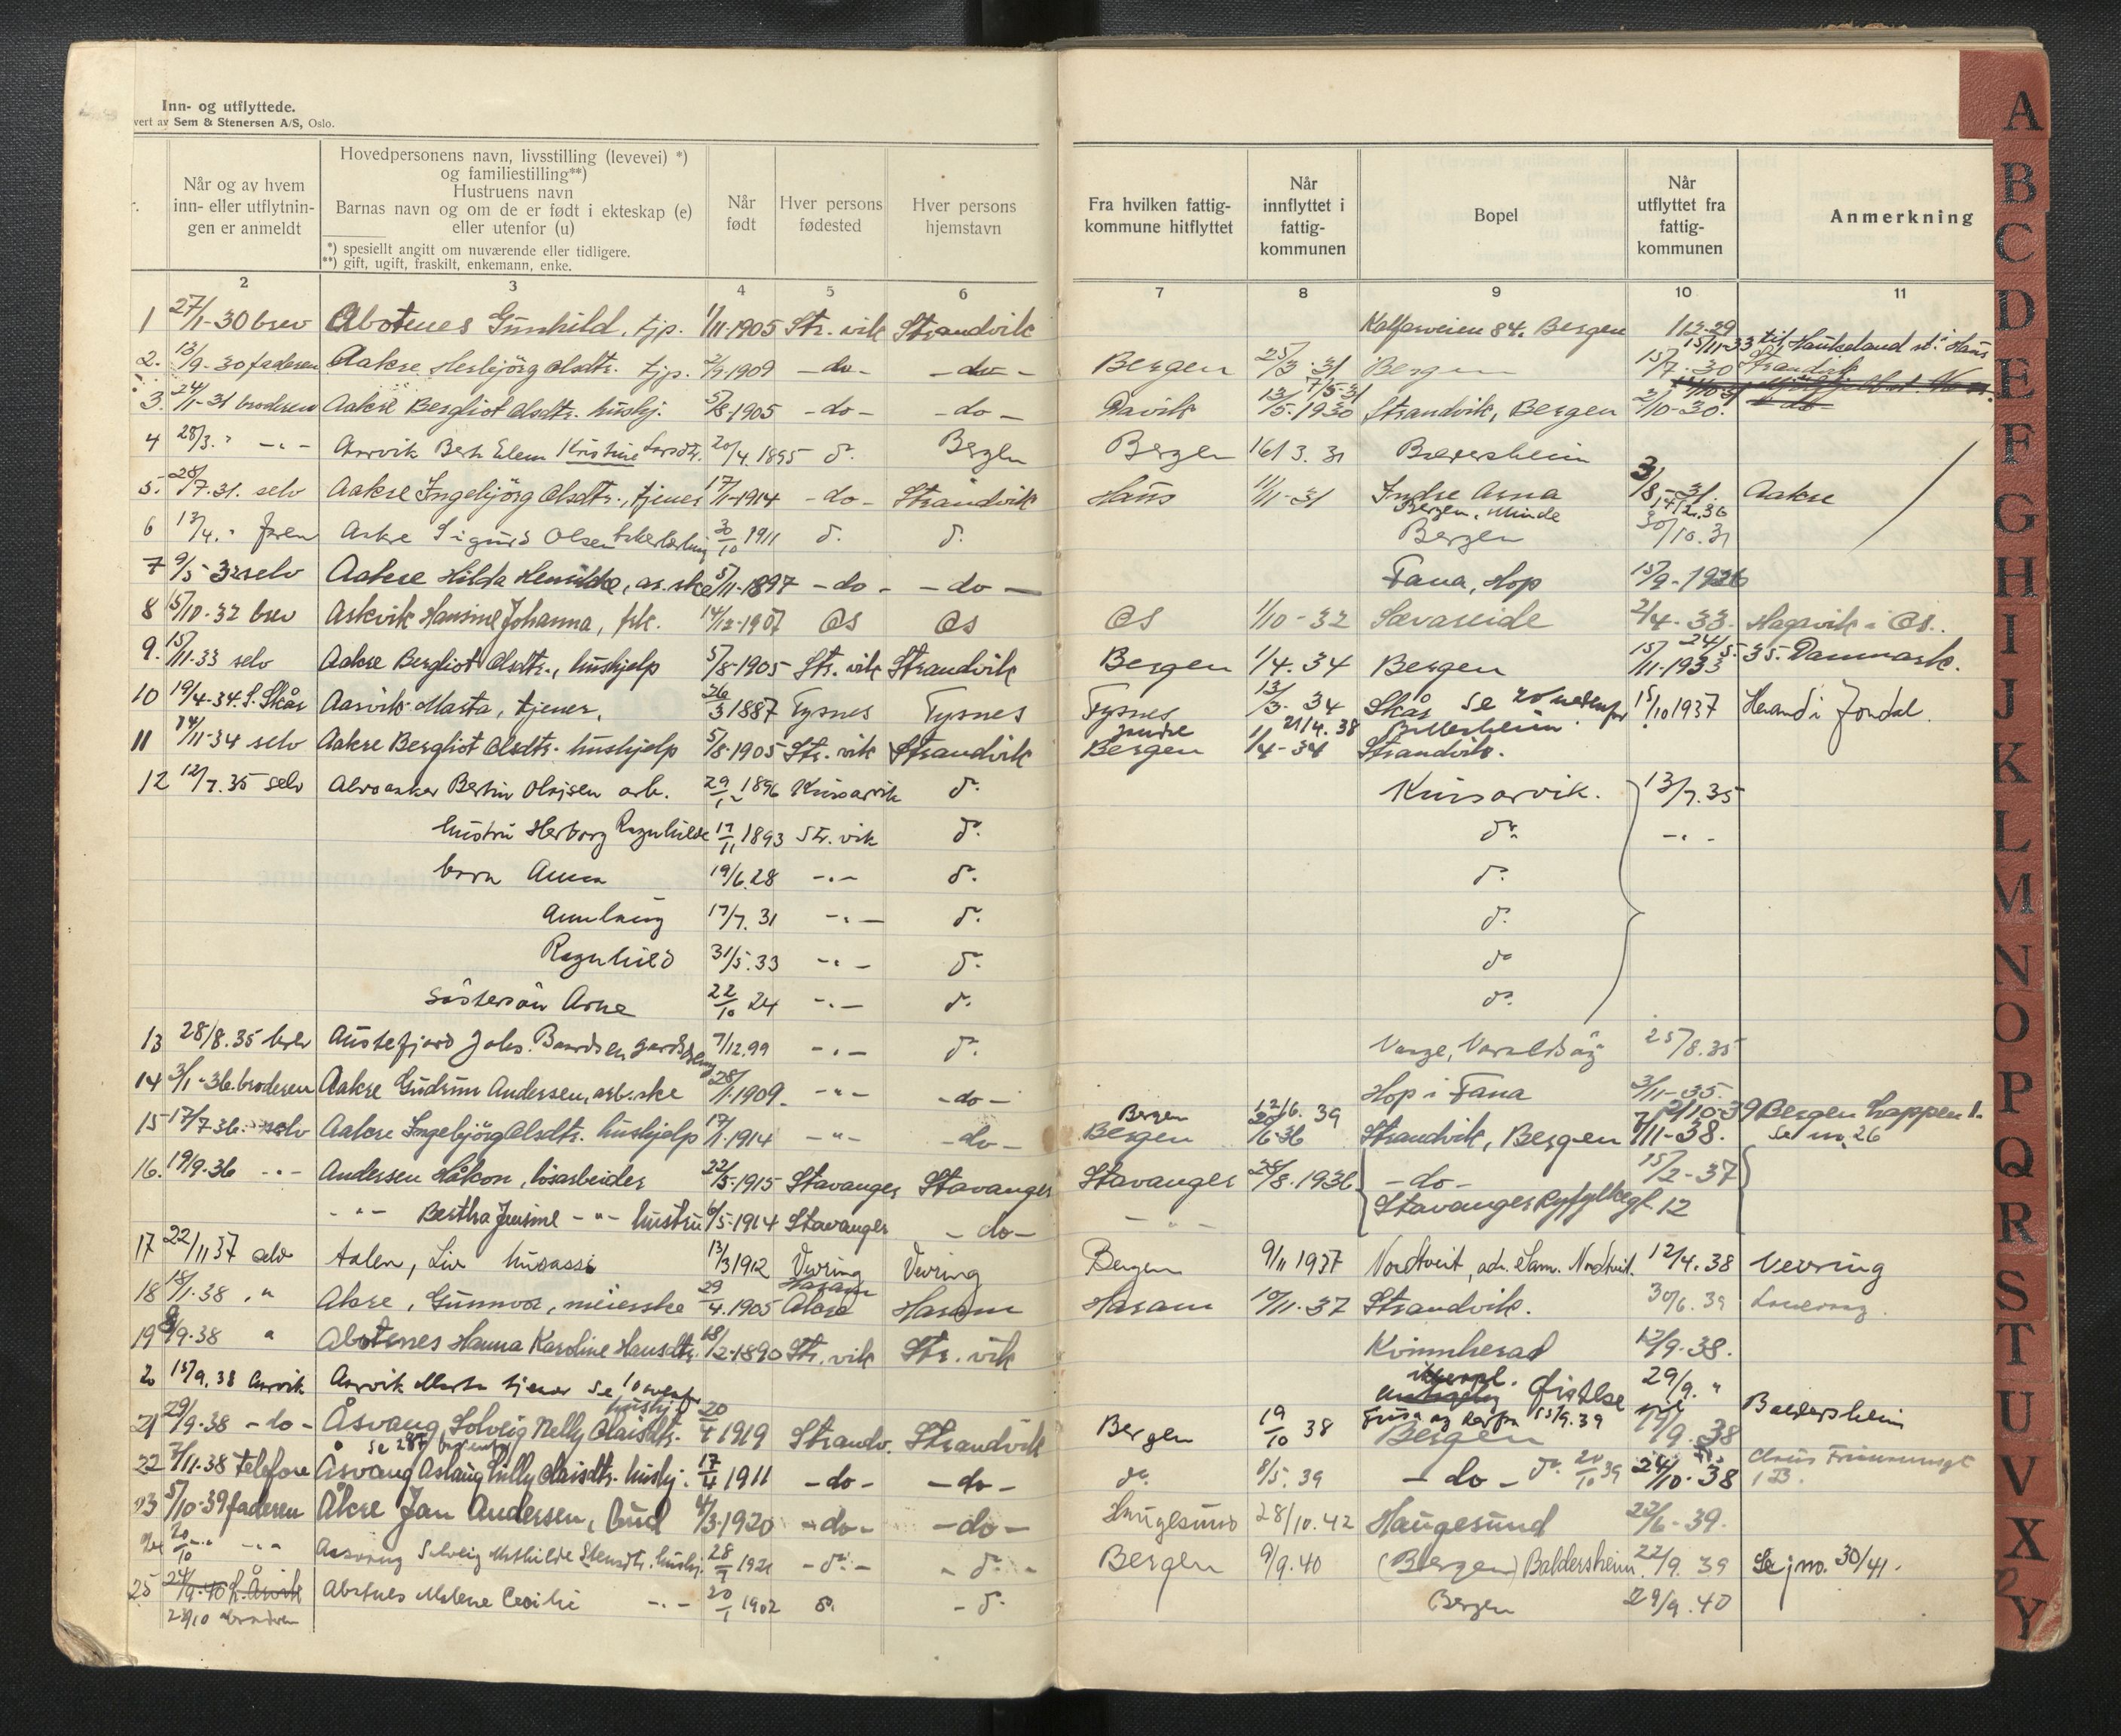 Inn- og utflyttede.
vert av Sem & Stenersen A/S, Oslo.
Når og av hvem
inn- eller utflytnin-
gen er anmeldt
Hovedpersonens navn, livsstilling (levevei) *)
og familiestilling**)
Hustruens navn
Barnas navn og om de er født i ekteskap (e)
eller utenfor (u)
*) spesiellt angitt om nuværende eller tidligere.
**) gift, ugift, fraskilt, enkemann, enke.
Når
født
Hver persons
fødested
Hver persons
hjemstavn
Fra hvilken fattig-
kommune hitflyttet
Når
innflyttet i
fattig-
kommunen
Bopel
Når
utflyttet fra
fattig-
kommunen
Anmerkning
2 3 4 5 6 7 8 9 10 11
1 27/1-30 brev Abotenes Gunhild, tjp. 1/11-1905 Str. vik Strandvik Kalfarveien 84. Bergen
15/11-33 til Haukeland st. i Haus
2. 13/9-30 faderen Aakre Herbjörg Olsdtr. tjp. 2/9-1909 -do- -do- Bergen 25/3-31 Bergen 15/7-30 Strandvik
7/5-31
3. 24/1-31 broderen Aakre Bergliot Olsdtr. hushj. 5/8-1905 -do- -do- Davik 13/5-1930 Strandvik, Bergen 2/10-30. -do-
4 28/3. " -"- Aarvik Berta Elem Kristine Larsdtr. 20/4.1895 do. Bergen Bergen 16/3.31 Baldersheim
5. 28/7.31. selv Aakre Ingebjörg Olsdtr., tjener 17/1-1914 -do- Strandvik Haus 11/11-31 Indre Arna 3/8-31. Aakre
Bergen, Minde 17/2.36
6 13/4. " faren Aakre Sigurd Olsen 30/10 1911 do. do. Bergen 30/10.31
7 9/5-32 selv Aakre Hilda Henrikke, ar.ske 5/11-1897 -do- -do- Fana, Hop 15/9-1926
8 5/10-32 brev Askvik Hansine Johanna, frk. 14/12-1907 Os Os Os 1/10-32 Sævareide 2/4-33. Hagavik i Os.
9. 15/11-33 selv Aakre Bergliot Olsdtr., hushjelp 5/8-1905 Str. vik Strandvik Bergen 1/4.34 Bergen 15/11-1933 24/5-35. Danmark.
10 19/4-34. S. Skår Aarvik Marta, tjener, 26/3 1887 Tysnes Tysnes Tysnes 13/3-34 Skår se 20 nedenfor 15/10 1937 Herand i Jondal.
Jondal 21/4.38 Baldersheim
11 14/11-34 selv Aakre Bergliot Olsdtr. hushjelp 5/8-1905 Str. vik Strandvik Bergen 1/4-34 Strandvik.
12 12/7.35 selv Alvsaaker Bertin Olajsen arb. 29/12 1896 Kinsarvik do. Kinsarvik. 13/7.35
hustru Herborg Ragnhilde 17/11 1893 Str. vik do. do. -"-
barn Anna 19/6.28 -"- do. do.
Annlaug 17/7.31 -"- do. do.
Ragnhild 31/5.33 -"- do. do
Söstersön Arne 22/10 24 -"- do. do.
13 28/8.35 brev Austefjord Johs. Baardsen 7/12.99 -"- do. Varge, Varaldsöy 25/8.35
14 3/1-36. broderen Aakre Gudrun Andersen, arb.ske 28/1-1909. -"- -do- Hop i Fana 3/11-35.
Bergen 12/6.39 2/10-39 Bergen
15 17/7-36. selv Aakre Ingebjörg Olsdtr. hushjelp 17/1-1914 -"- -do- Bergen 20/6-36 Strandvik, Bergen 7/11-38. Se no. 26
16. 19/9-36 -"- Andersen Håkon, lösarbeider 22/5-1915 Stavanger Stavanger Stavanger 26/8.1936 -do- 15/2-37
-"- Bertha Jensine -"- hustru 6/5-1914 Stavanger -do- -"- Stavanger Ryfylkegt. 12
17 22/11 37 selv Aalen, Liv husass 13/3 1912 Vevring Vevring Bergen 9/11 1937 Nordtveit, adr. Sam. Nordtveit. 12/4.38 Vevring
Haram
18 18/1.38 " Akre, Gunnvor, meierske 29/4.1905 Akre Haram Haram 10/11-37 Strandvik. 30/6.39
19 9/9.38 " Abotenes Hanna Karoline Hansdtr. 18/2-1890 Str. vik Str. vik Kvinnherad 12/9-38.
20 15/9.38 Aarvik Aarvik Marta tjener se 10 ovenfor Gistelse 29/9. "
hushj. Fusa og derfra 15/9.39
21 29/9-38 -do- Åsvang Solveig Nelly Olaisdtr. 20/4 1919 Strandv. Strandvik Bergen 19/10 38 Bergen 19/9.38 Baldersheim
22 7/11-38 telefon Åsvang Aslaug Lilly Olaisdtr. hushj. 17/4 1911 -do- -do- do. 8/5.39 -do- do. 20/10 39 24/10-38
23 5/10-39 faderen Åkre Jan Andersen, bud 4/3-1920 -do- -do- Haugesund 28/10.42 Haugesund 22/6-39.
24 20/10 " -"- Aasvang Solveig Mathilde Stensdtr. hushj. 28/9 1921 -do.- -do.- Bergen 9/9.40 (Bergen) Baldersheim. 22/9.39 Se jno. 30/41.
25 24/9-40 L. Åsvik Abotnes Malene Cecilie -"- 20/1 1902 do. -do. Bergen 29/9.40
broderen
A
B
C
D
E
F
G
H
I
J
K
L
M
N
O
P
Q
R
S
T
U
V
X
Y